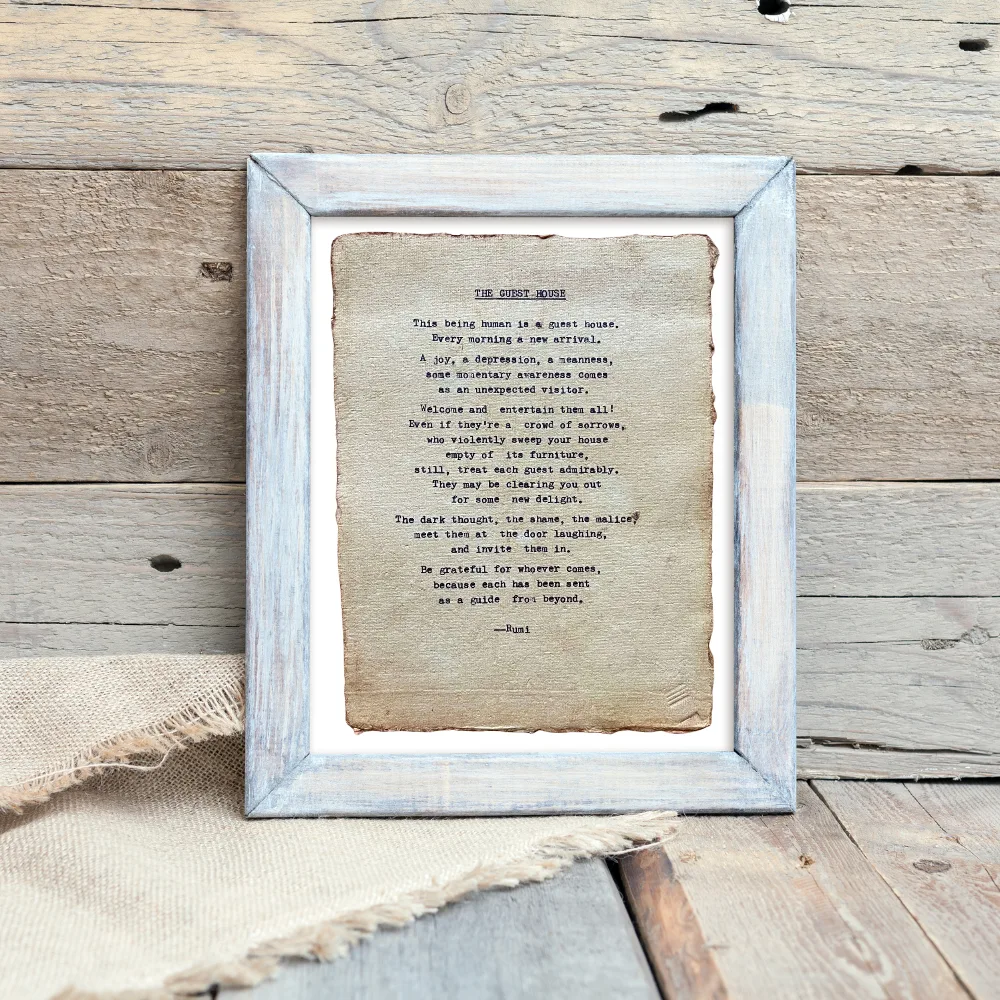 THE GUEST HOUSE
This being human is a guest house.
Every morning a new arrival.
A joy, a depression, a meanness,
some momentary awareness comes
as an unexpected visitor.
Welcome and entertain them all!
Even if they're a crowd of sorrows,
who violently sweep your house
empty of its furniture,
still, treat each guest admirably.
They may be clearing you out
for some new delight.
The dark thought, the shame, the malice,
meet them at the door laughing,
and invite them in.
Be grateful for whoever comes,
because each has been sent
as a guide from beyond.
—Rumi